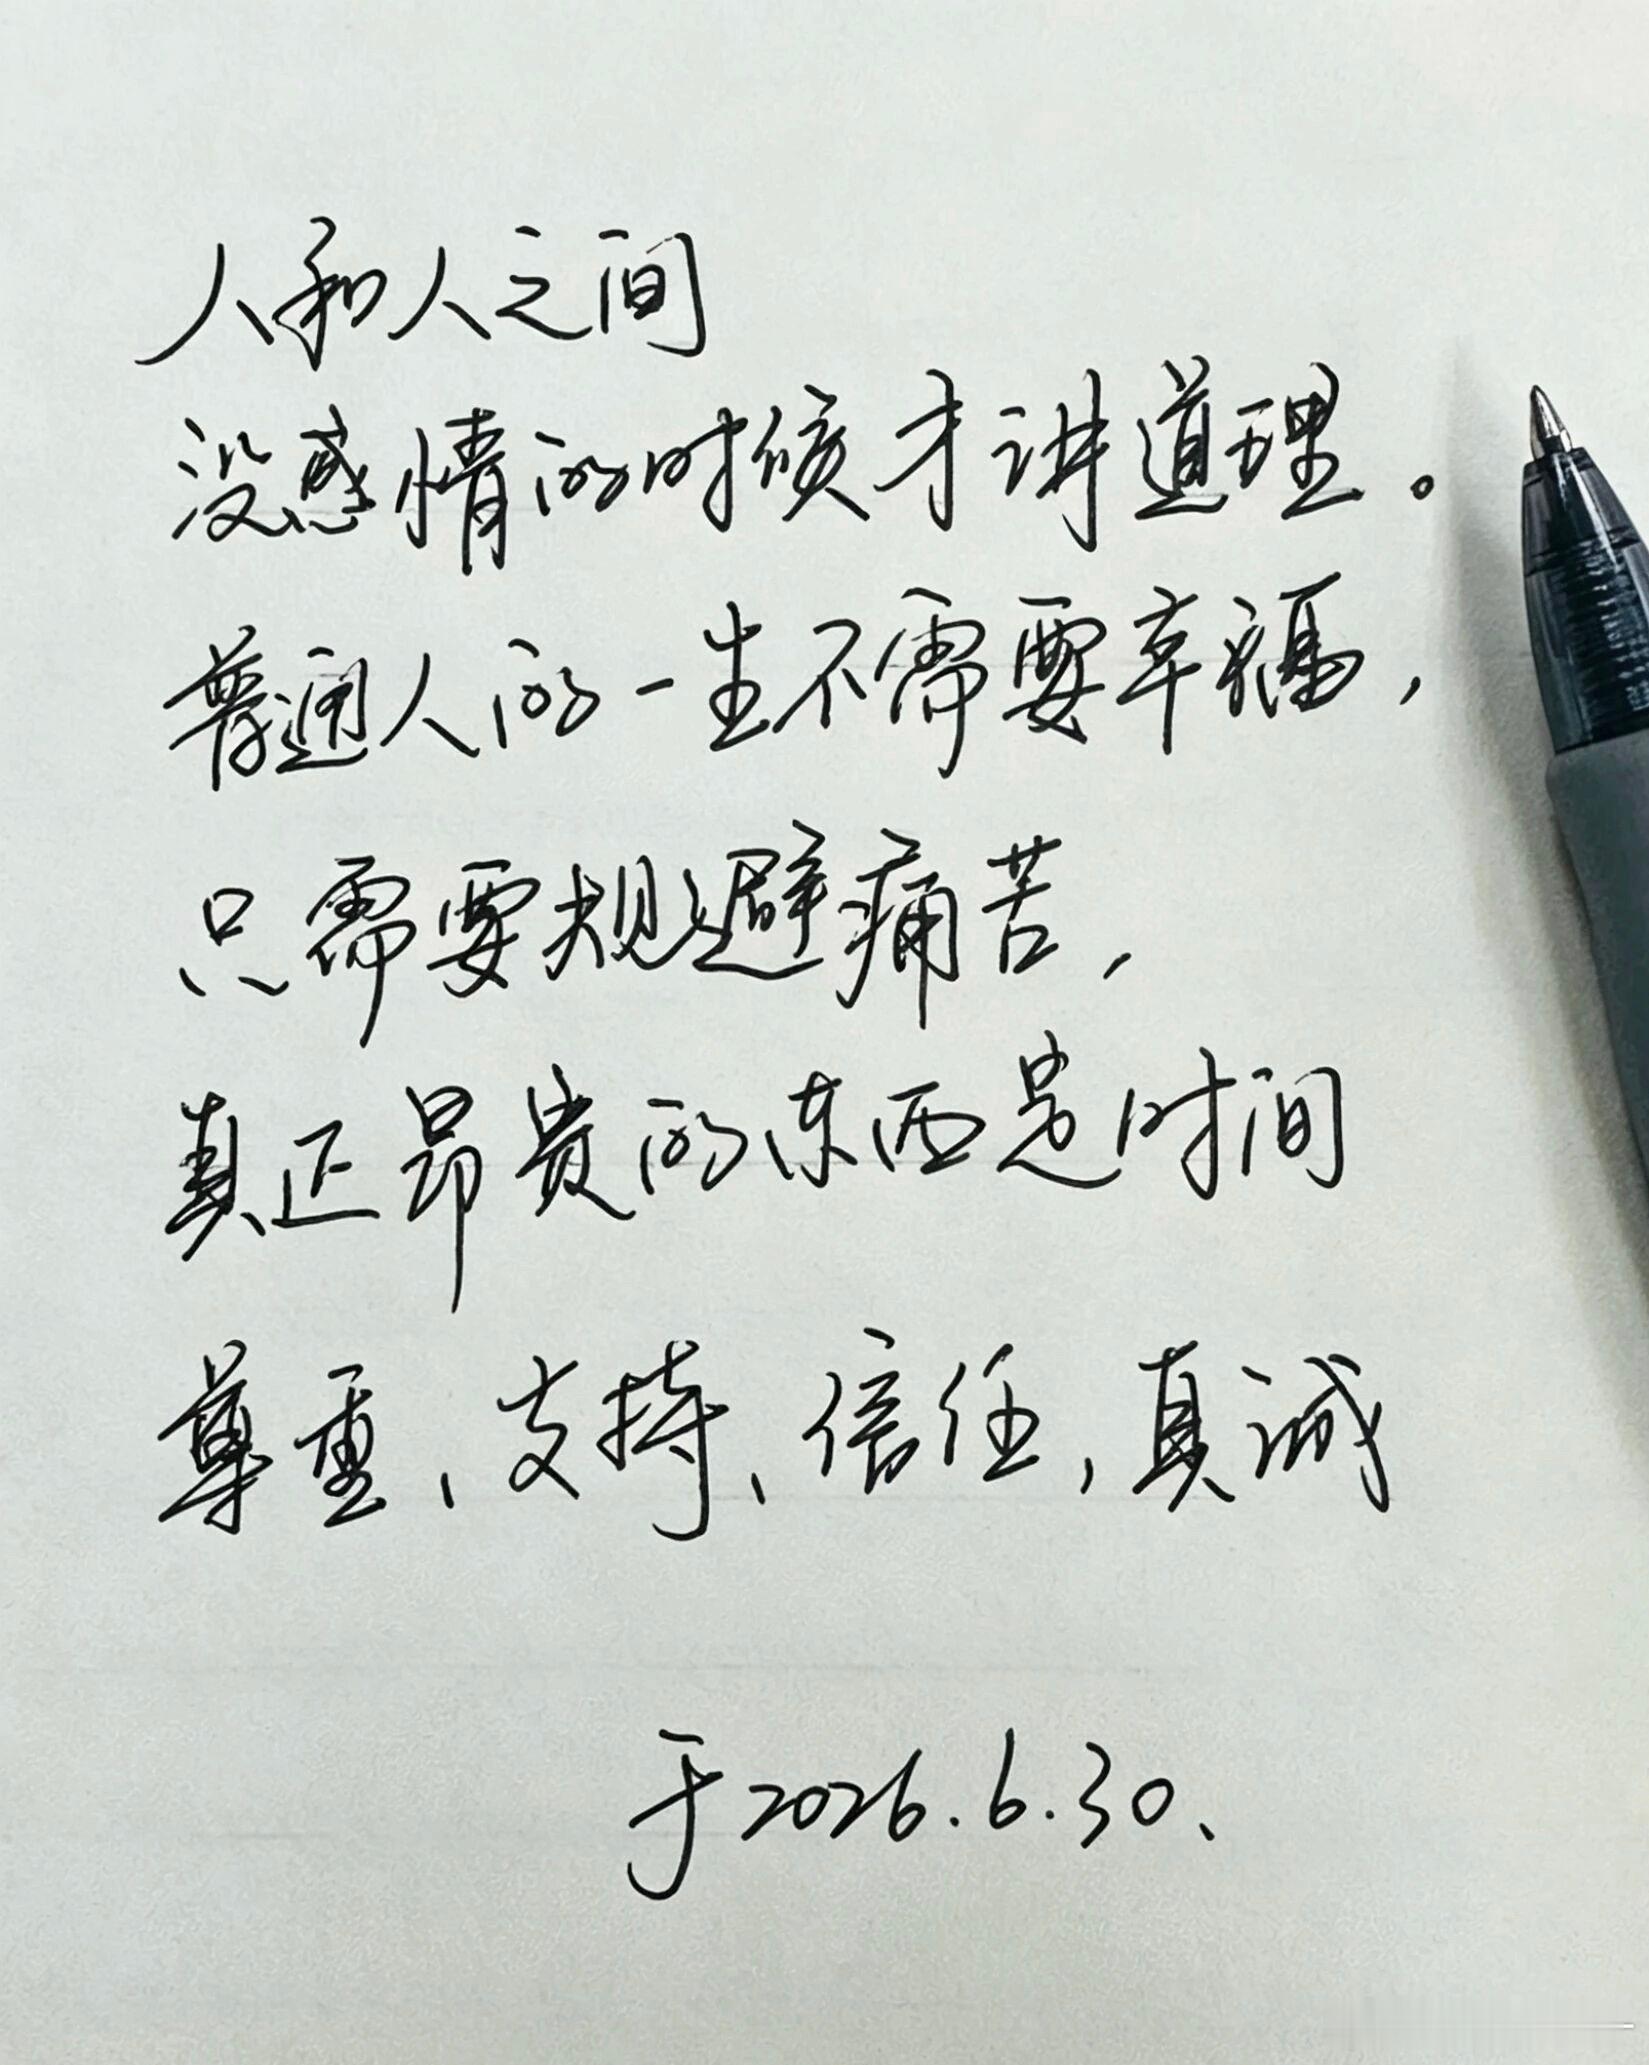 人和人之间
没感情的时候才讲道理。
普通人的一生不需要幸福，
只需要规避痛苦，
真正昂贵的东西是时间
尊重、支持、信任，真诚
于2026.6.30、